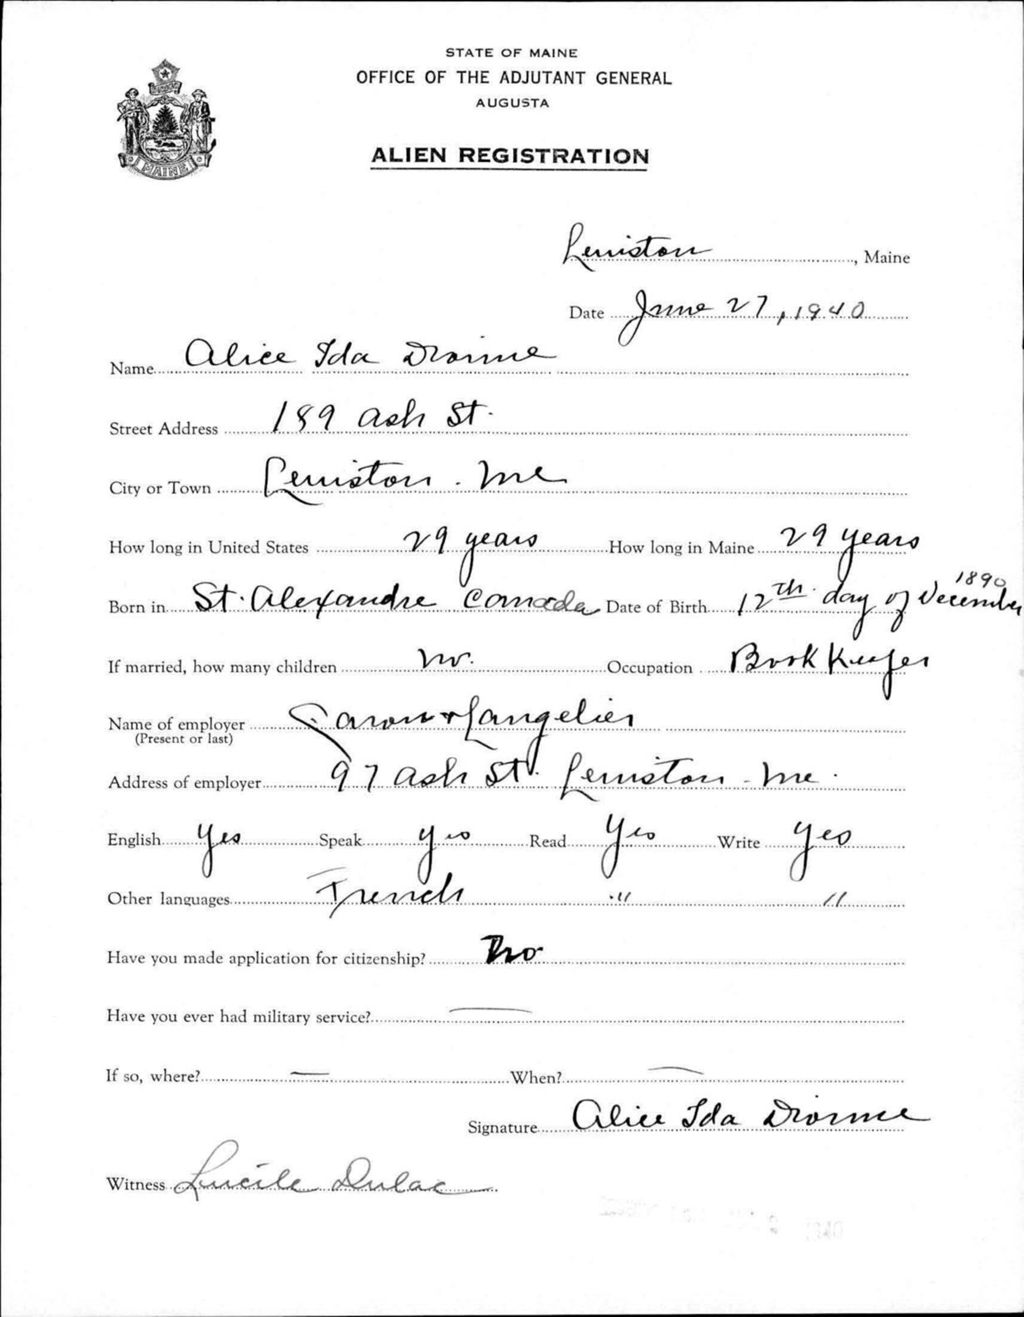 STATE OF MAINE
OFFICE OF THE ADJUTANT GENERAL
AUGUSTA
ALIEN REGISTRATION
MAINE
Lewiston, Maine
Date June 27, 1940
Name Alice Ida Dionne
Street Address 189 Ash St.
City or Town Lewiston. Me
How long in United States 29 years How long in Maine 29 years
Born in St. Alexandre Canada Date of Birth 12th day of December 1890
If married, how many children no. Occupation Book Keeper
Name of employer Caron & Langelier
(Present or last)
Address of employer 97 Ash St. Lewiston - Me.
English Yes Speak Yes Read Yes Write Yes
Other languages French " "
Have you made application for citizenship? No
Have you ever had military service? —
If so, where? — When? —
Signature Alice Ida Dionne
Witness Lucile Dulac